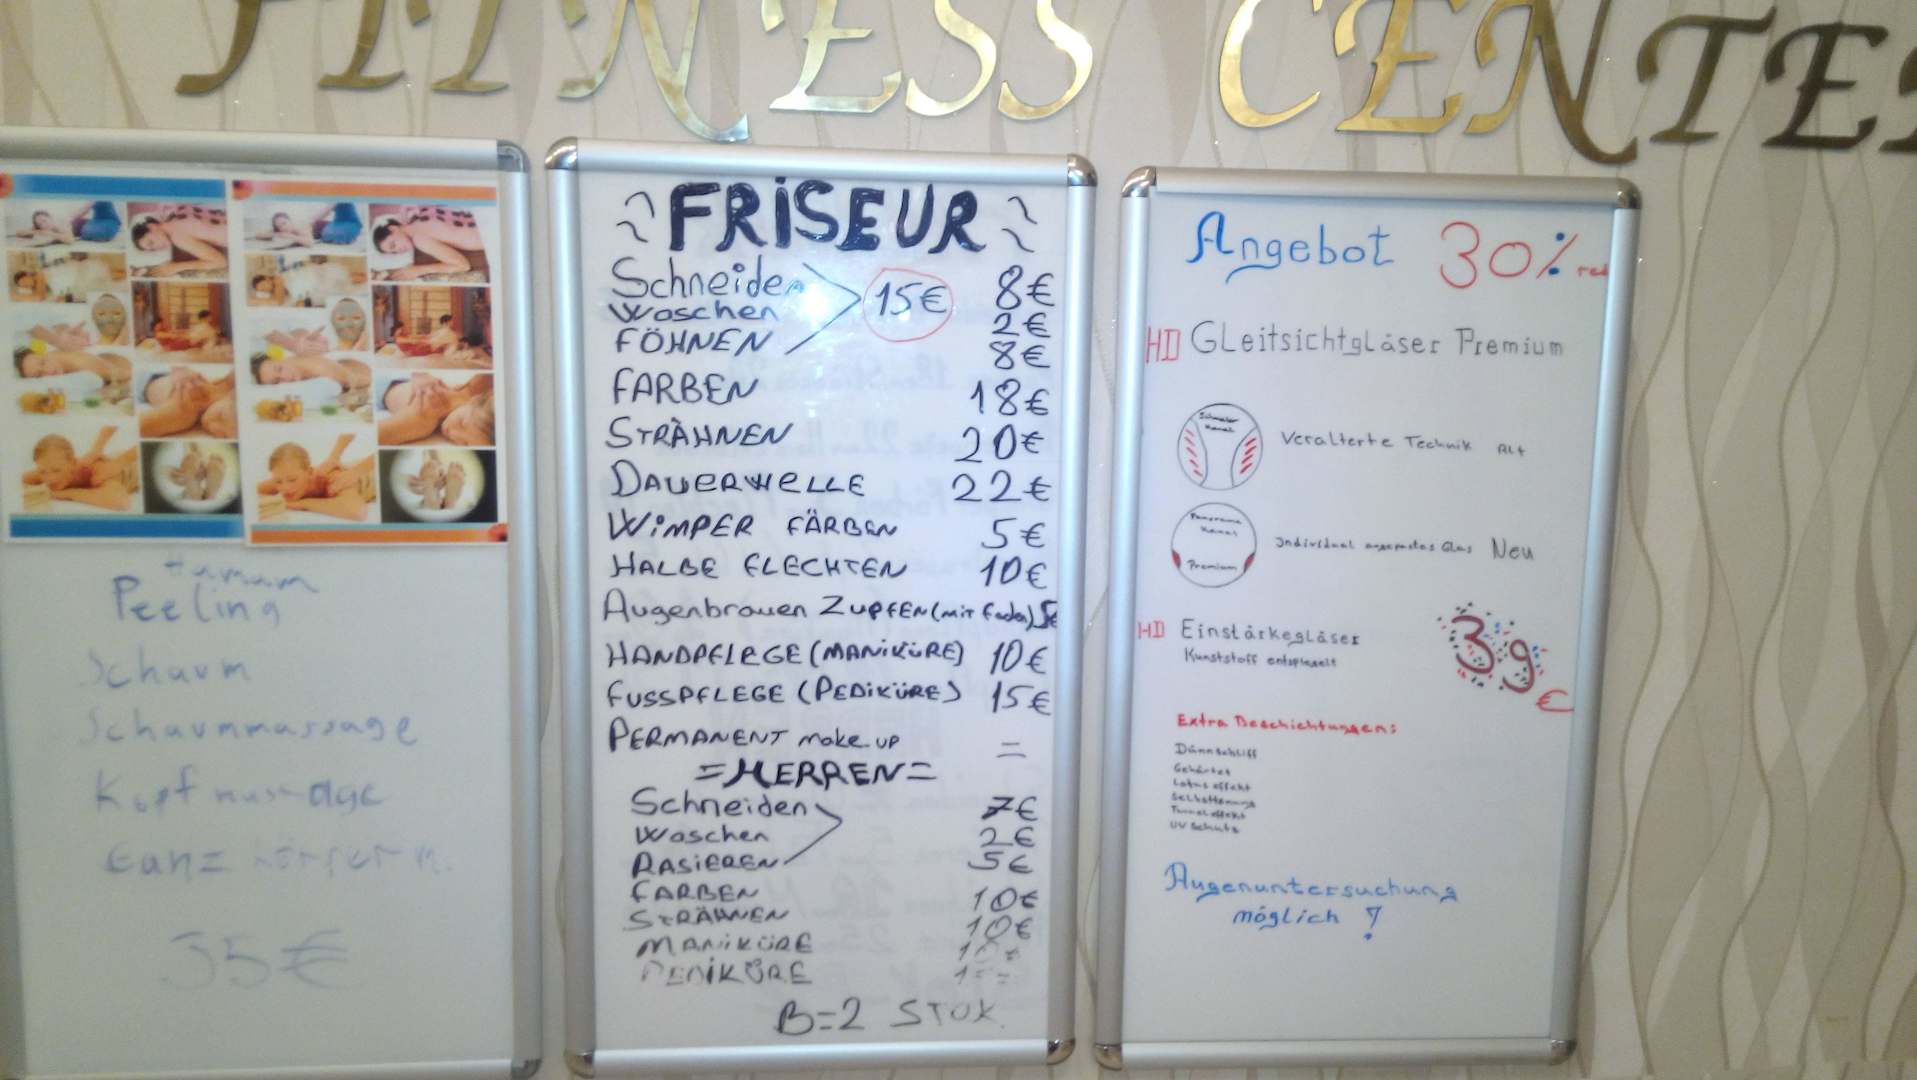 FITNESS CENTER
Hamam
Peeling
Schaum
Schaummassage
Kopfmassage
Ganz körper m.
35€
FRiSEUR
Schneiden 8€
Waschen 15€ 2€
FÖHNEN 8€
FARBEN 18€
STRÄHNEN 20€
DAUERWELLE 22€
WiMPER FÄRBEN 5€
HALBE FLECHTEN 10€
Augenbrauen ZUPFEN (MiT Faden) 5€
HANDPFLEGE (MANiKÜRE) 10€
FUSSPFLEGE (PEDiKÜRE) 15€
PERMANENT make-UP =
=HERREN=
Schneiden 7€
Waschen 2€
RASiEREN 5€
FARBEN 10€
STRÄHNEN 10€
MANiKÜRE 10€
PEDiKÜRE
B=2 STOK
Angebot 30% red
HD GLeitsichtgläser Premium
Schmaler
Kanal
Veralterte Technik Alt
Panorama
Kanal
Premium
Individual angepastes Glas Neu
HD Einstärkegläser
Kunststoff entspiegelt
39€
Extra Beschichtungen:
Dünnschliff
Gehärtet
Lotus effekt
Selbsttönung
Tunneleffekt
UV Schutz
Augenuntersuchung
möglich !